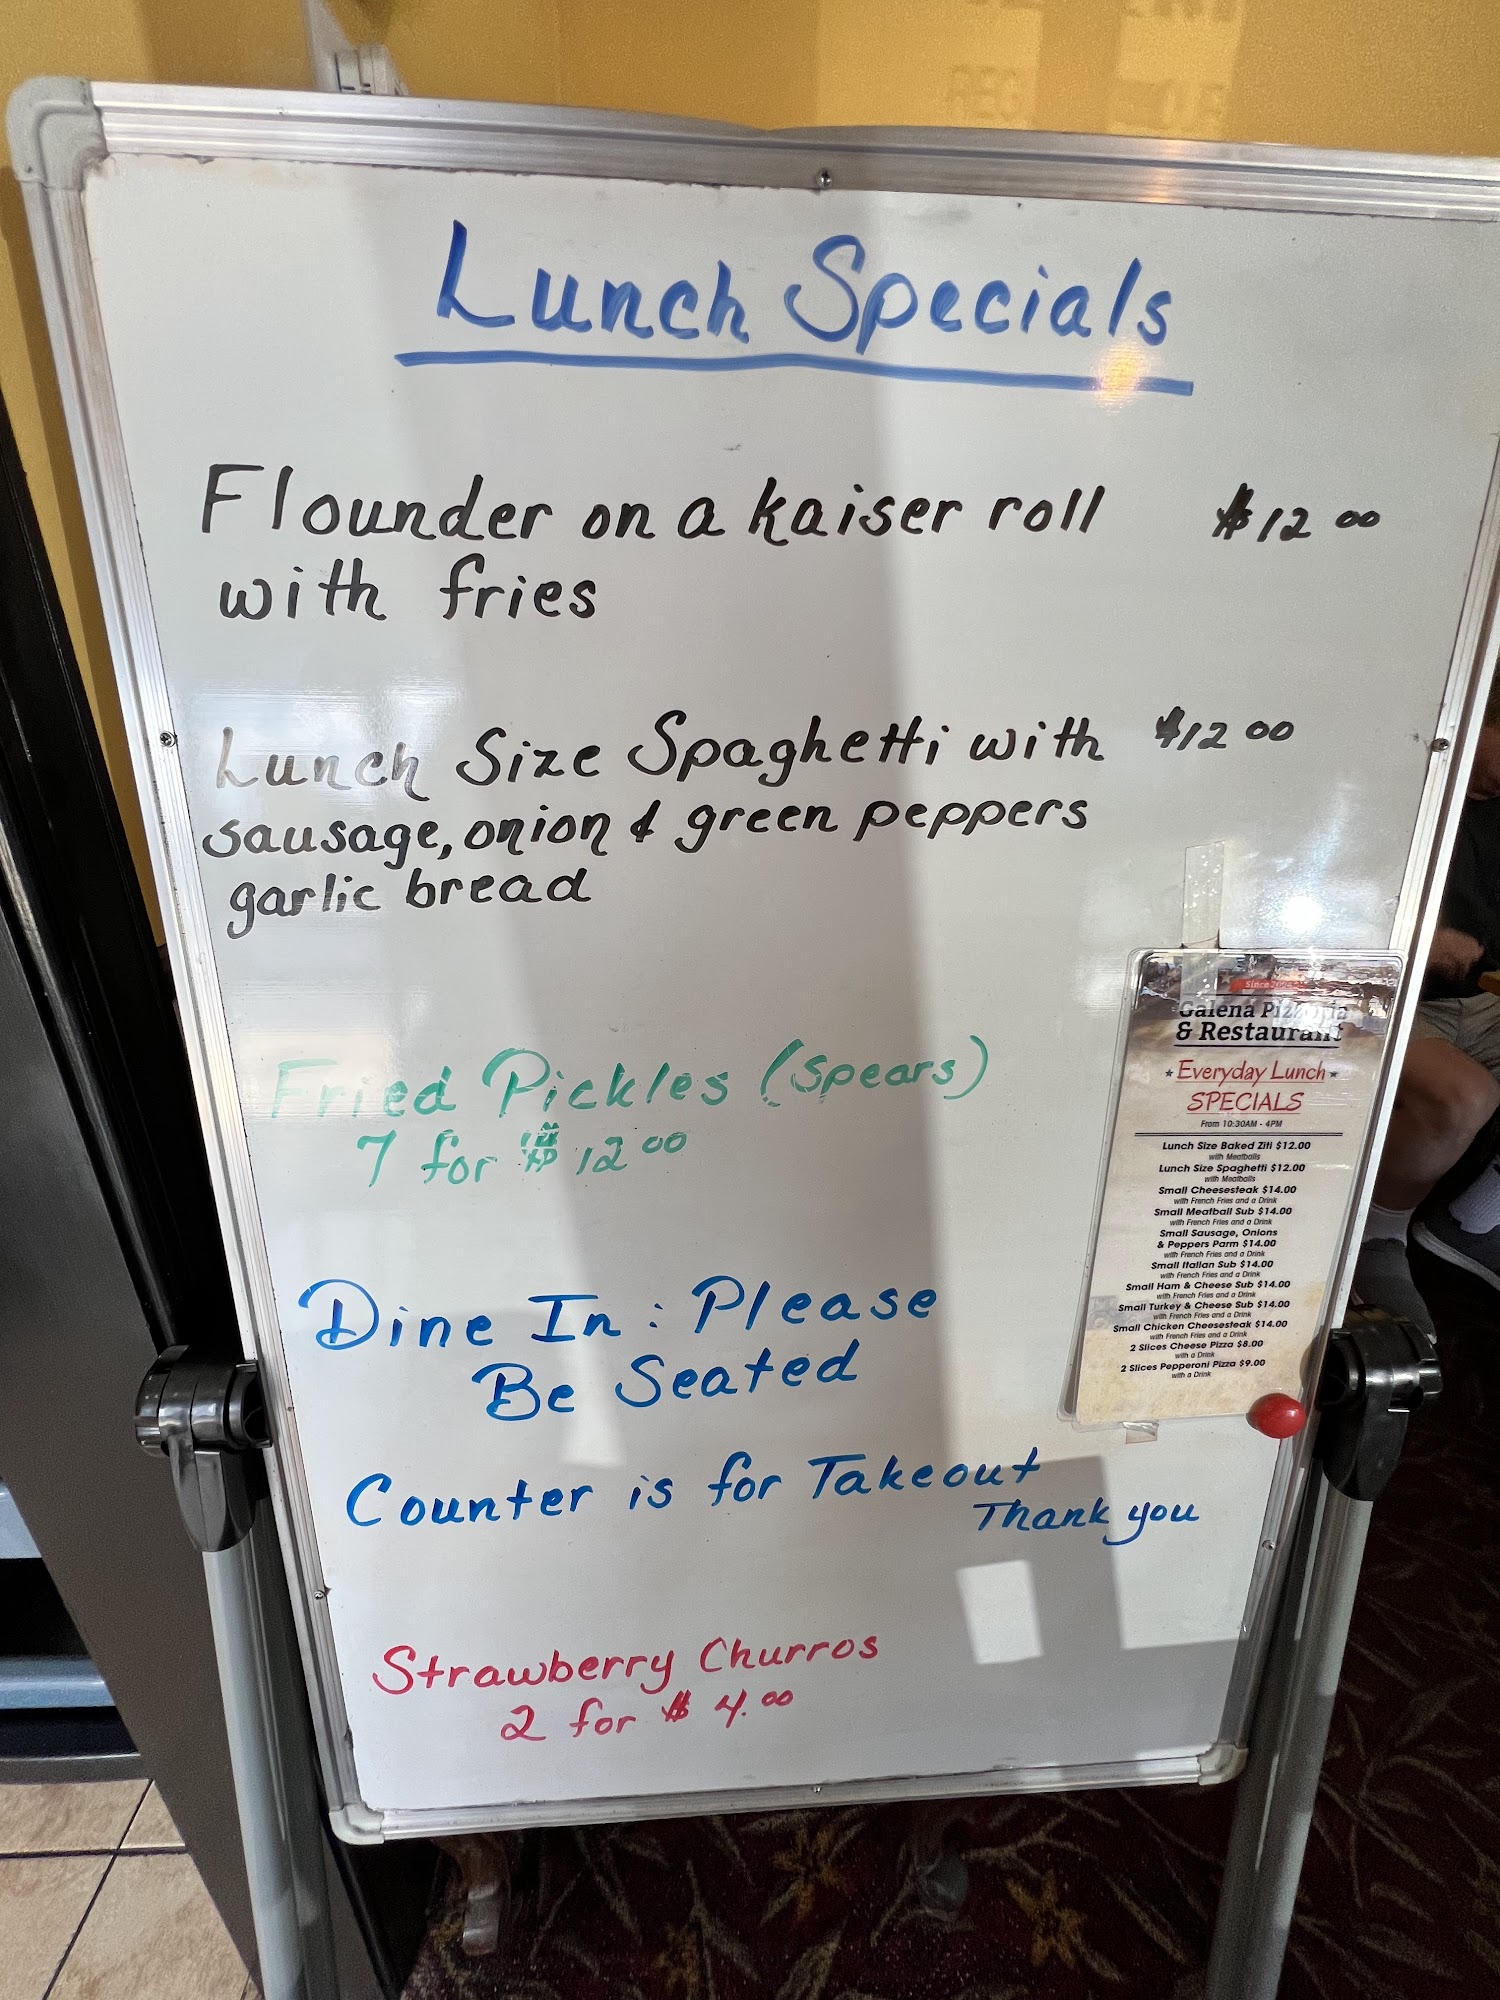 Lunch Specials
Flounder on a kaiser roll $12 00
with fries
Lunch Size Spaghetti with $12 00
sausage, onion & green peppers
garlic bread
Fried Pickles (Spears)
7 for $12 00
Dine In: Please
Be Seated
Counter is for Takeout
Thank you
Strawberry Churros
2 for $4.00
Since
Galena Pizzeria
& Restaurant
Everyday Lunch
SPECIALS
From 10:30AM - 4PM
Lunch Size Baked Ziti $12.00
with Meatballs
Lunch Size Spaghetti $12.00
with Meatballs
Small Cheesesteak $14.00
with French Fries and a Drink
Small Meatball Sub $14.00
with French Fries and a Drink
Small Sausage, Onions
& Peppers Parm $14.00
with French Fries and a Drink
Small Italian Sub $14.00
with French Fries and a Drink
Small Ham & Cheese Sub $14.00
with French Fries and a Drink
Small Turkey & Cheese Sub $14.00
with French Fries and a Drink
Small Chicken Cheesesteak $14.00
with French Fries and a Drink
2 Slices Cheese Pizza $8.00
with a Drink
2 Slices Pepperoni Pizza $9.00
with a Drink